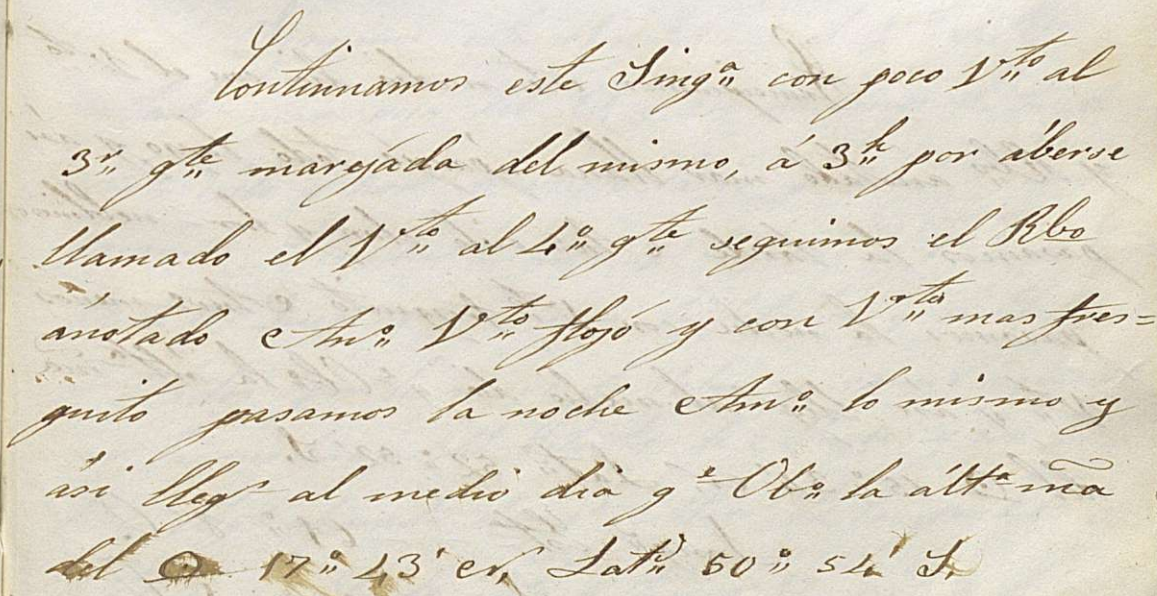 Continuamos este Singª con poco Vto al
3r gte marejada del mismo, á 3h por áberse
llamado el Vto al 4º gte seguimos el Rbo
ánotado Anº Vto flojo y con Vto mas fres=
quito pasamos la noche Amº lo mismo y
ási llegs al medio dia qe Obº la áltª ma
del 17º 43' Latd 50º 54' S.